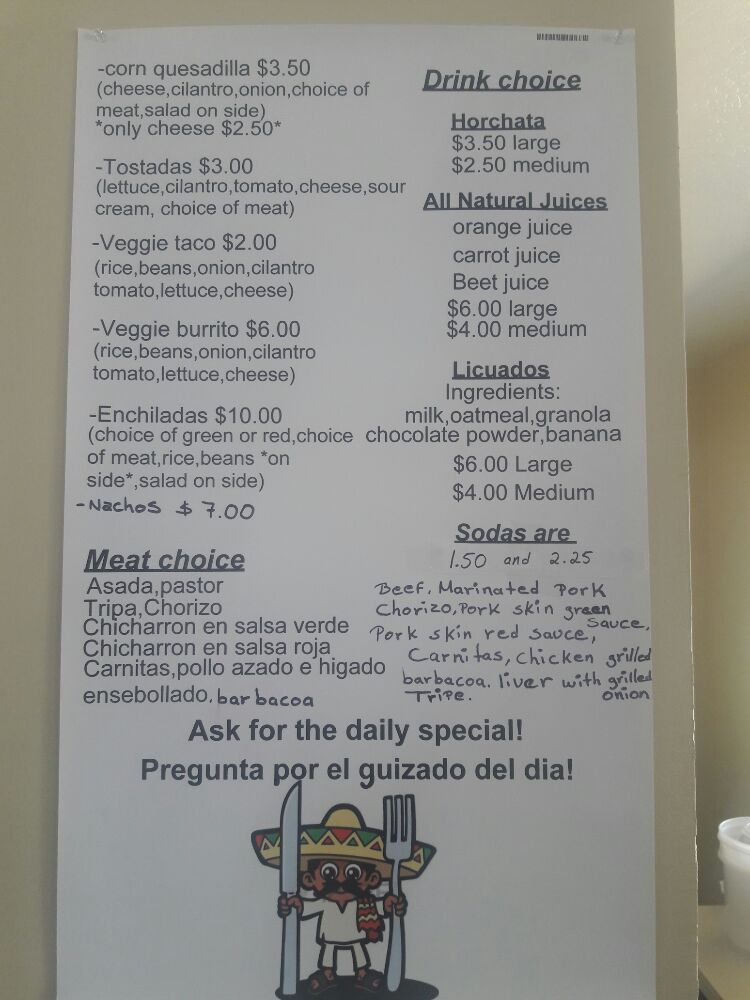 -corn quesadilla $3.50
(cheese,cilantro,onion,choice of
meat,salad on side)
*only cheese $2.50*
-Tostadas $3.00
(lettuce,cilantro,tomato,cheese,sour
cream, choice of meat)
-Veggie taco $2.00
(rice,beans,onion,cilantro
tomato,lettuce,cheese)
-Veggie burrito $6.00
(rice,beans,onion,cilantro
tomato,lettuce,cheese)
-Enchiladas $10.00
(choice of green or red,choice
of meat,rice,beans *on
side*,salad on side)
-Nachos $ 7.00
Meat choice
Asada,pastor
Tripa,Chorizo
Chicharron en salsa verde
Chicharron en salsa roja
Carnitas,pollo azado e higado
ensebollado. barbacoa
Drink choice
Horchata
$3.50 large
$2.50 medium
All Natural Juices
orange juice
carrot juice
Beet juice
$6.00 large
$4.00 medium
Licuados
Ingredients:
milk,oatmeal,granola
chocolate powder,banana
$6.00 Large
$4.00 Medium
Sodas are
1.50 and 2.25
Beef. Marinated Pork
Chorizo, Pork skin green
sauce,
Pork skin red sauce,
Carnitas, chicken grilled
barbacoa. liver with grilled
Tripe. onion
Ask for the daily special!
Pregunta por el guizado del dia!